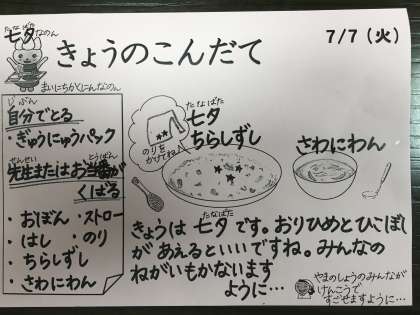 たなばた
七夕なのん
きょうのこんだて
7/7(火)
まいにちがくにんなのん
じぶん
自分でとる
・ぎゅうにゅうパック
せんせい とうばん
先生またはお当番が
くばる
・おぼん ・ストロー
・はし ・のり
・ちらしずし
・さわにわん
のりを
かけてね♪
たなばた
七夕
ちらしずし
さわにわん
たなばた
きょうは 七夕です。おりひめとひこぼし
があえるといいですね。みんなの
ねがいもかないます
ように…
やまのしょうのみんなが
けんこうで
すごせますように…